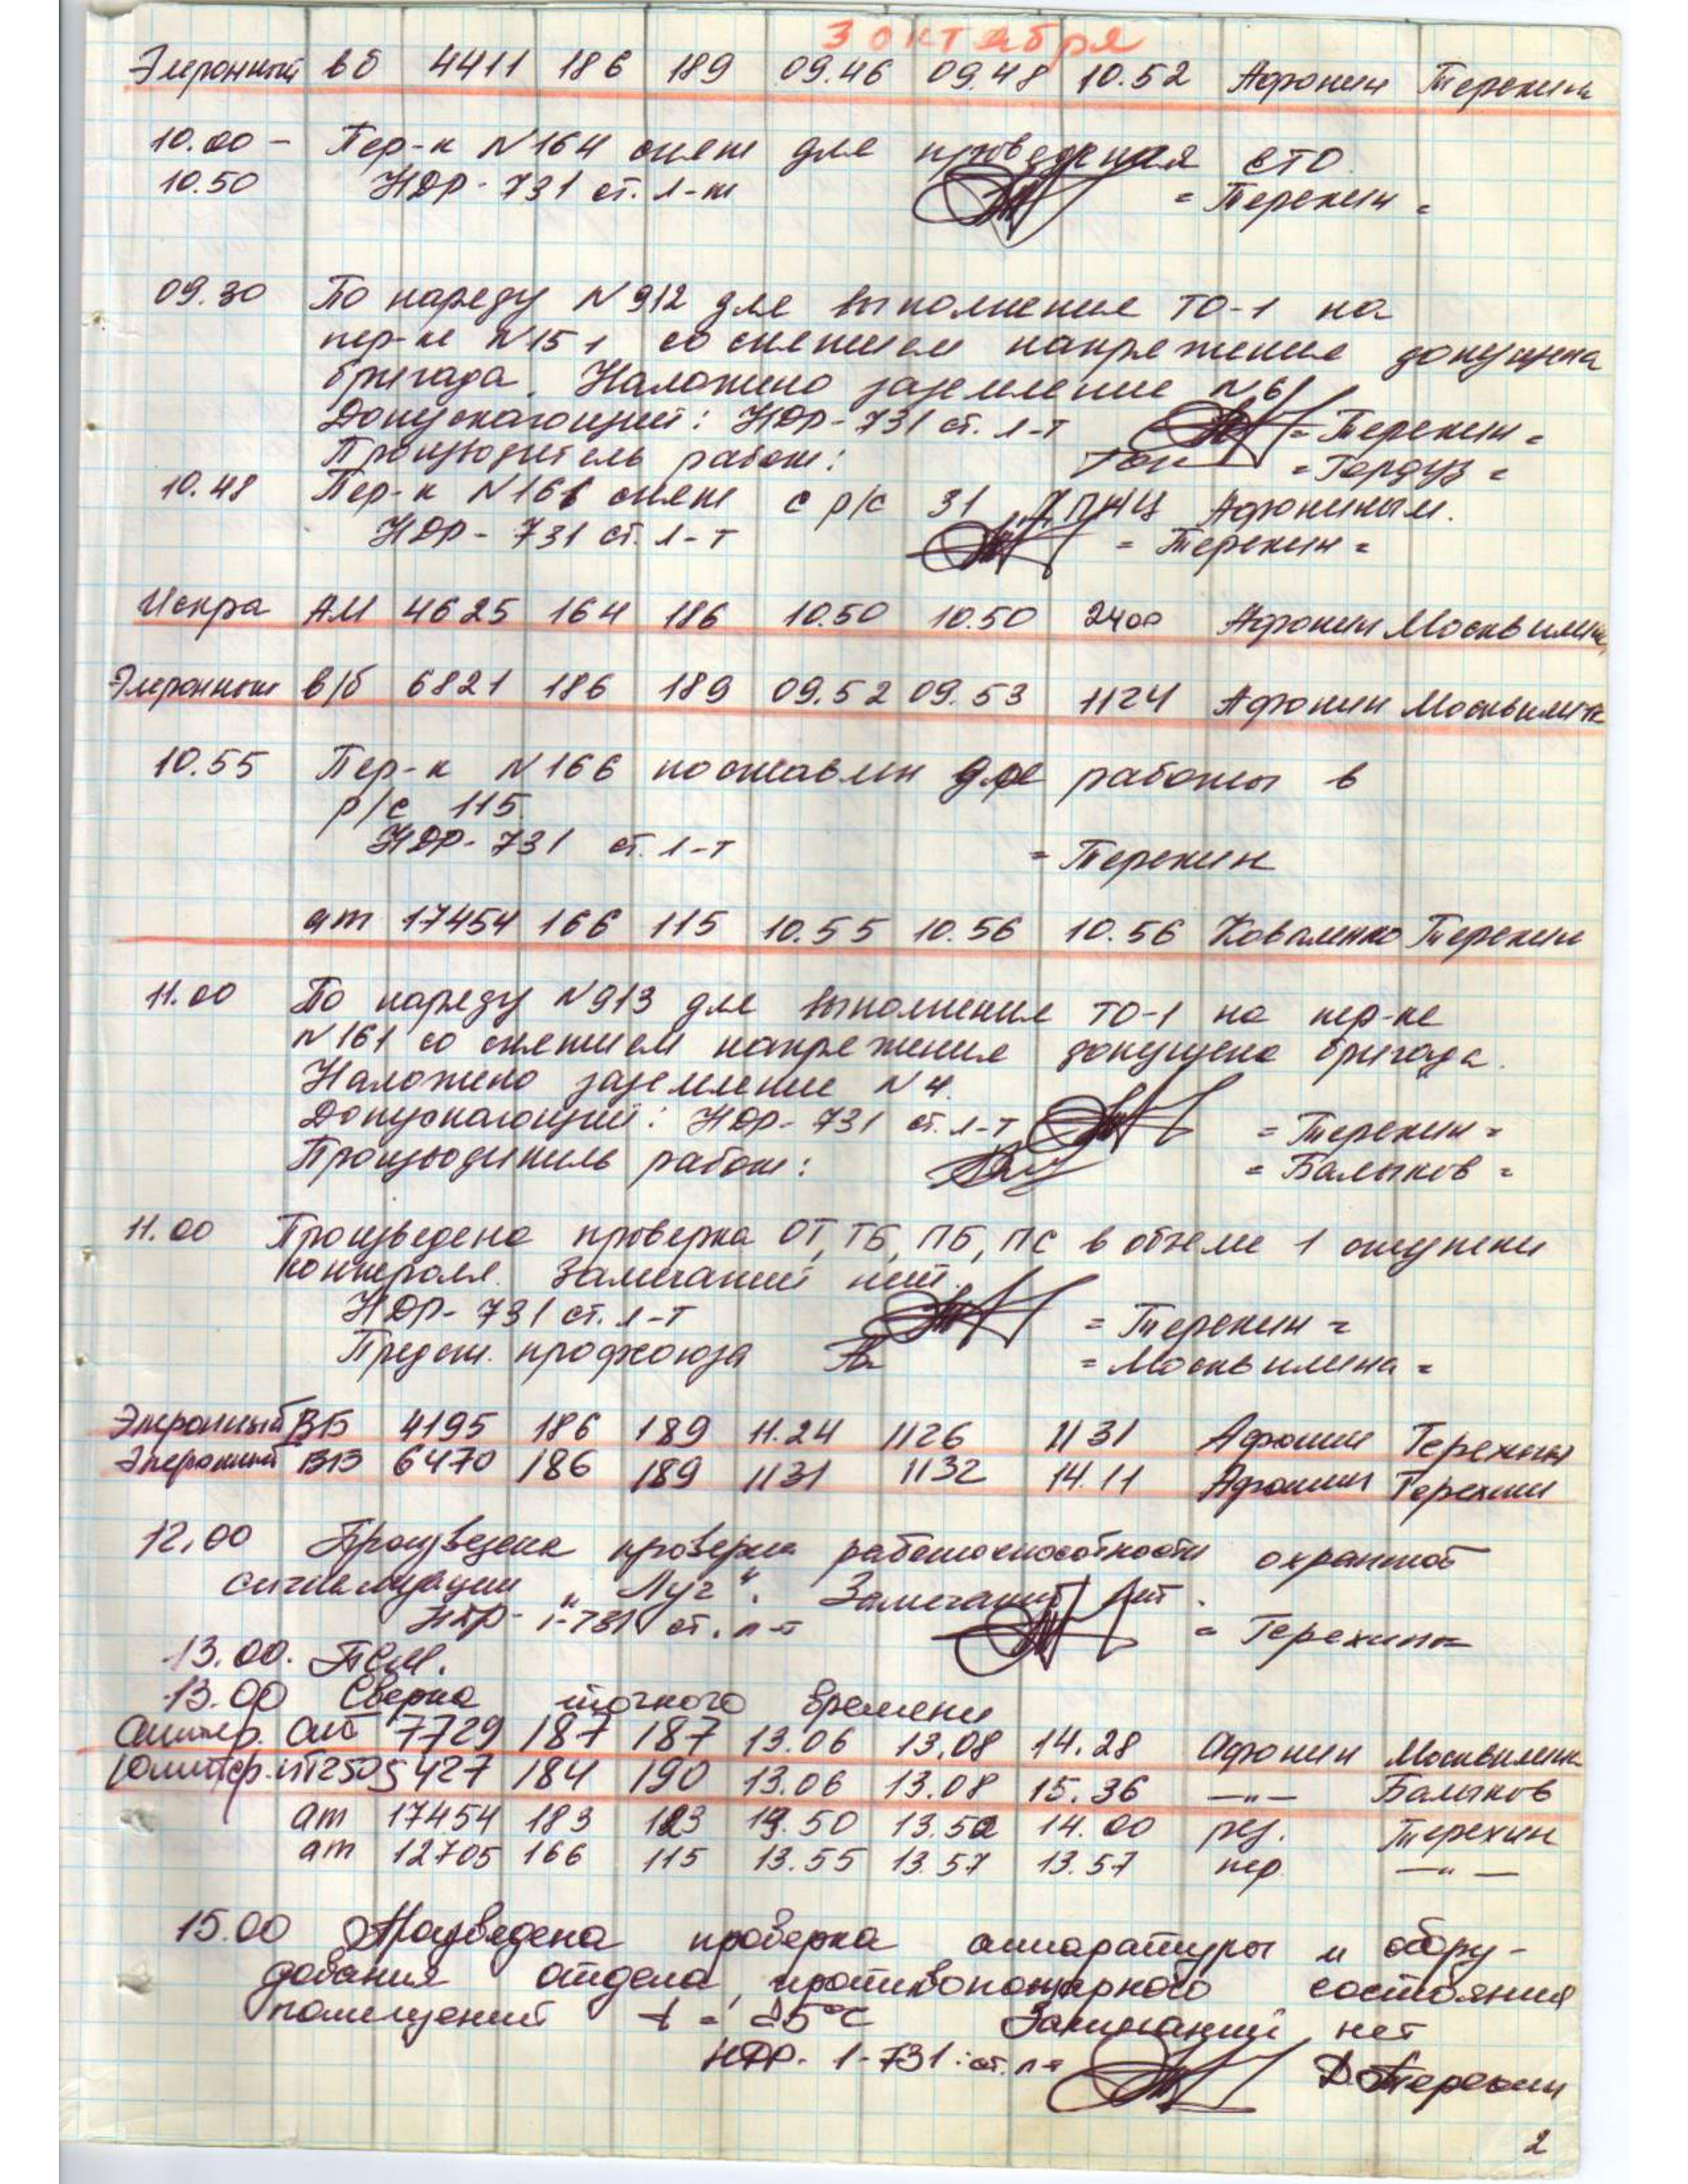 3 октября
Элеронный вб 4411 186 189 09.46 09.48 10.52 Афонин Терехин
10.00 – Пер-к N164 снят для проведения ЕТО.
10.50 НДР-731 ст. л-т = Терехин =
09.30 По наряду N912 для выполнения ТО-1 на
пер-ке N151 со снятием напряжения допущена
бригада. Наложено заземление N6
Допускающий: НДР-731 ст. л-т = Терехин =
Производитель работ: = Гордуз =
10.48 Пер-к N166 снят с р/с 31 ДПНЦ Афониным.
НДР-731 ст. л-т = Терехин =
Искра АМ 4625 164 186 10.50 10.50 2400 Афонин Москвилина
Элеронный в/б 6821 186 189 09.52 09.53 1124 Афонин Москвилина
10.55 Пер-к N166 поставлен для работы в
р/с 115.
НДР-731 ст. л-т = Терехин
ат 17454 166 115 10.55 10.56 10.56 Коваленко Терехин
11.00 По наряду N913 для выполнения ТО-1 на пер-ке
N161 со снятием напряжения допущена бригада.
Наложено заземление N4.
Допускающий: НДР-731 ст. л-т = Терехин =
Производитель работ: = Балыков =
11.00 Произведена проверка ОТ, ТБ, ПБ, ПС в объеме 1 ступени
контроля. Замечаний нет.
НДР-731 ст. л-т = Терехин =
Предст. профсоюза = Москвилина =
Элеронный ВБ 4195 186 189 11.24 1126 1131 Афонин Терехин
Элеронный ВБ 6470 186 189 1131 1132 14.11 Афонин Терехин
12.00 Произведена проверка работоспособности охранной
сигнализации „Луч". Замечаний нет.
НДР-1-731 ст. л-т = Терехин =
13.00. ПСМ.
13.00 Сверка точного времени
7729 187 187 13.06 13.08 14.28 Афонин Москвилина
Юпитер. 5427 184 190 13.06 13.08 15.36 —"— Балыков
ат 17454 183 183 13.50 13.52 14.00 рез. Терехин
ат 12705 166 115 13.55 13.57 13.57 пер. —"—
15.00 Произведена проверка аппаратуры и обору-
дования отдела, противопожарного состояния
помещений t = 25°С Замечаний нет
НДР-1-731: ст. л-т Д.Терехин
2